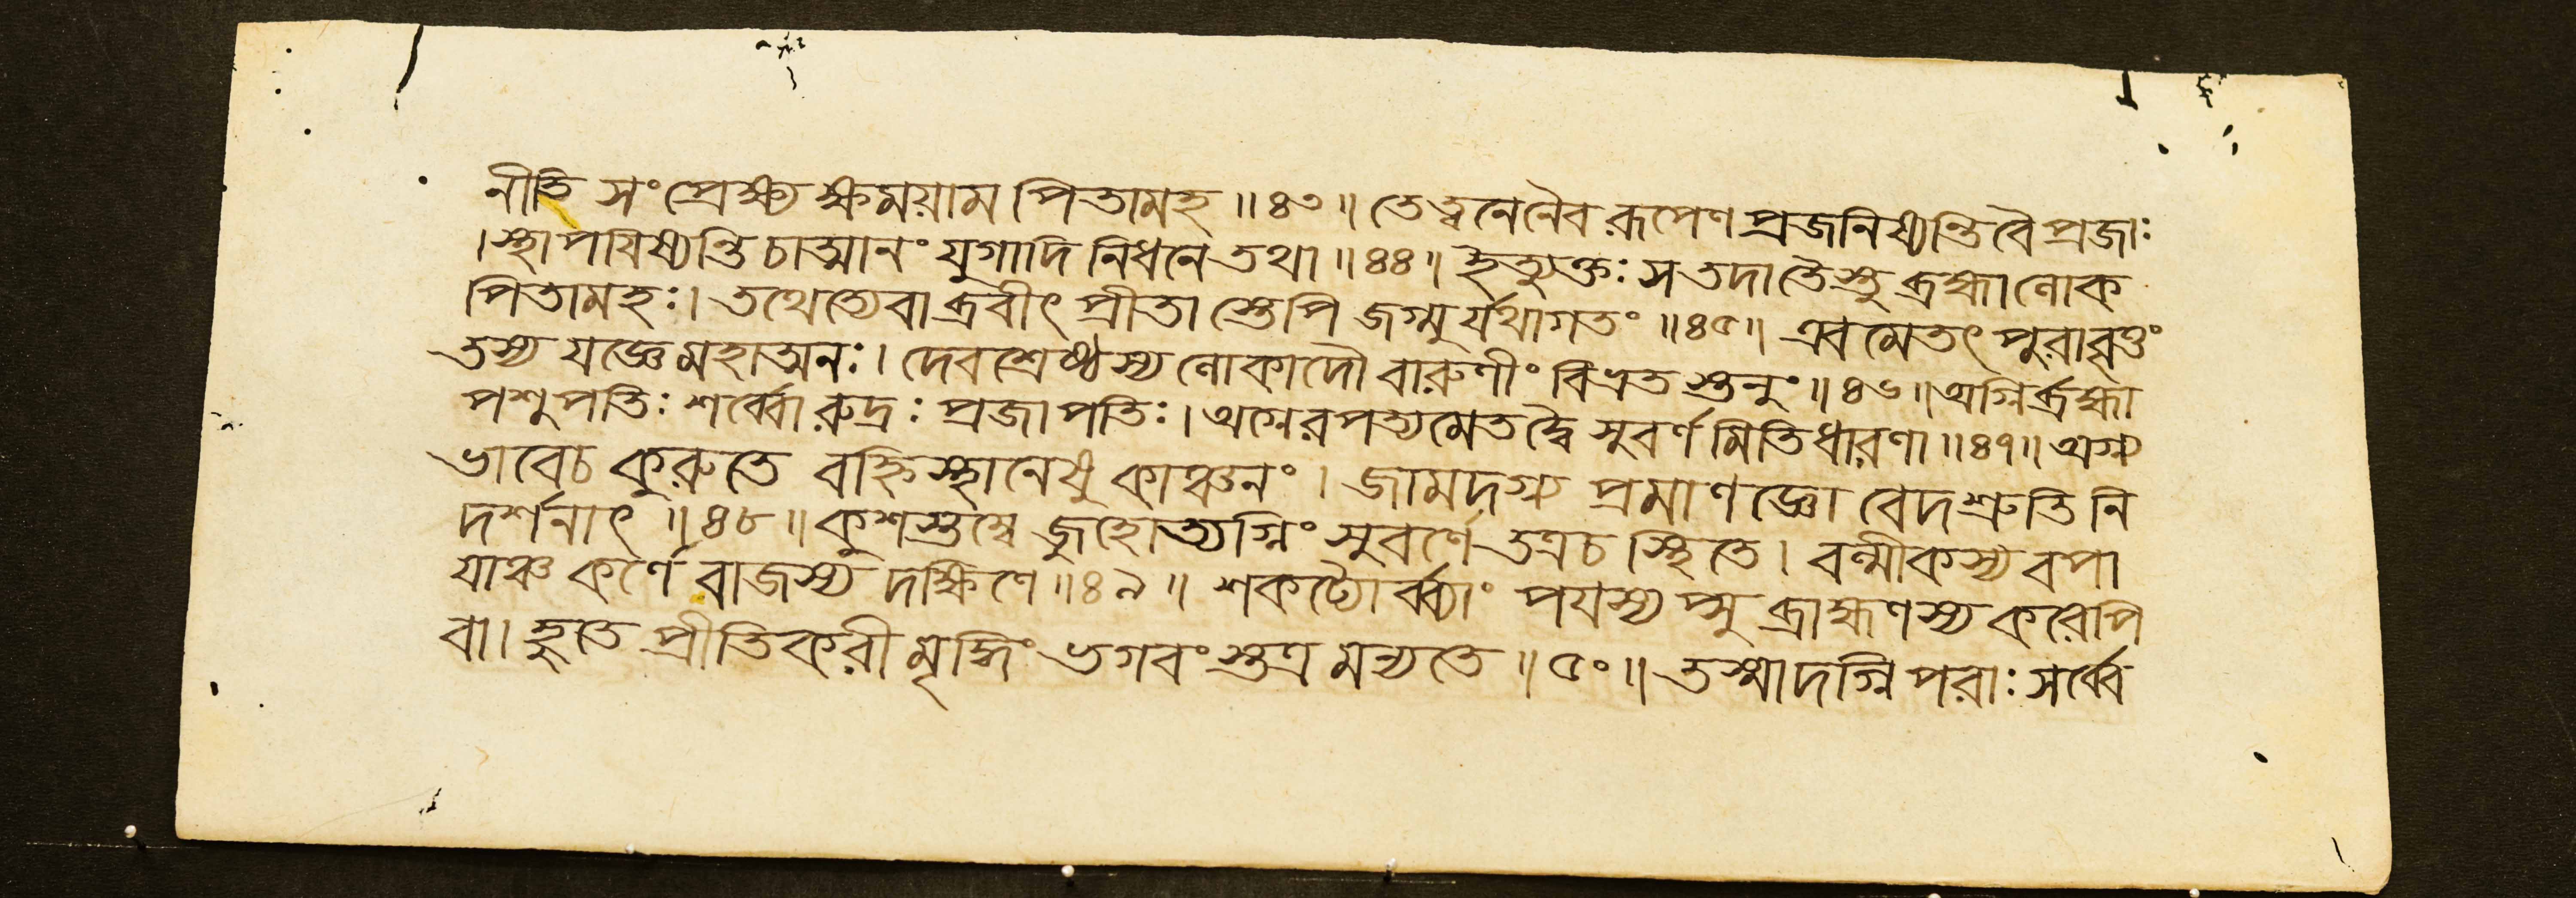 নীতি সংপ্রেক্ষ্য ক্ষময়াম পিতামহ ॥ ৪৩ ॥ তে ত্বনেনৈব রূপেণ প্রজনিষ্যন্তি বৈ প্রজাঃ
। স্থাপযিষ্যন্তি চাত্মানং যুগাদি নিধনে তথা ॥ ৪৪ ॥ ইত্যুক্তঃ স তদা তৈস্তু ব্রহ্মা লোক
পিতামহঃ । তথেত্যেবাব্রবীৎ প্রীতা স্তেপি জগ্মু র্যথাগতং ॥ ৪৫ ॥ এবমেতৎ পুরাবৃত্তং
তস্য যজ্ঞে মহাত্মনঃ । দেবশ্রেষ্ঠস্য লোকাদৌ বারুণীং বিভ্রত স্তনুং ॥ ৪৬ ॥ অগ্নির্ব্রহ্মা
পশুপতিঃ শর্ব্বো রুদ্রঃ প্রজাপতিঃ । অগ্নেরপত্যমেতদ্বৈ সুবর্ণমিতি ধারণা ॥ ৪৭ ॥ অগ্ন্য
ভাবেচ কুরুতে বহ্নিস্থানেষু কাঞ্চনং । জামদগ্ন্য প্রমাণজ্ঞো বেদশ্রুতি নি
দর্শনাৎ ॥ ৪৮ ॥ কুশস্তম্বে জুহোত্যগ্নিং সুবর্ণে তত্রচ স্থিতে । বল্মীকস্য বপা
যাঞ্চ কর্ণে বাজস্য দক্ষিণে ॥ ৪৯ ॥ শকট্যোর্ব্ব্যাং পযস্যপ্সু ব্রাহ্মণস্য করেপি
বা । হুতে প্রীতিকরী মৃদ্ধিং ভগবং স্তত্র মন্যতে ॥ ৫০ ॥ তস্মাদগ্নি পরাঃ সর্ব্বে